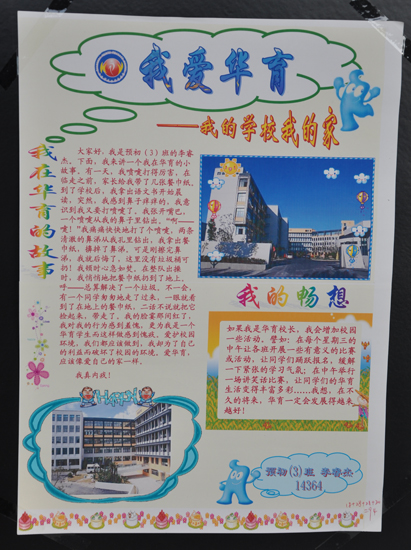 我爱华育
——我的学校我的家
我在华育的故事
大家好，我是预初（3）班的李睿
杰。下面，我来讲一个我在华育的小
故事。有一天，我喷嚏打得厉害，在
临走之前，家长给我带了几张餐巾纸。
到了学校后，我拿出语文书开始晨
读，突然，我感到鼻子痒痒的，我意
识到我又要打喷嚏了，我张开嘴巴，
一个喷嚏从我的鼻子里钻出。“啊——
嚏！”我痛痛快快地打了个喷嚏，两条
清澈的鼻涕从我鼻孔里钻出。我拿出餐
巾纸，擤掉了鼻涕，可是刚擦完鼻
涕，我就后悔了，这里没有垃圾桶可
扔！我顿时心急如焚。在整队出操
时，我悄悄地把餐巾纸扔到了地上。
呼——总算解决了一个垃圾。不一会，
有一个同学匆匆地走了过来，一眼就看
到了在地上的餐巾纸，二话不说就把它
捡起来，带走了。我的脸霎那间红了，
我对我的行为感到羞愧，更为我是一个
华育学生而这样做感到愧疚。爱护校园
环境，我们都应该做到，我却为了自己
的利益而破坏了校园的环境。爱华育，
应该像爱自己的家一样。
我真内疚！
我的畅想
如果我是华育校长，我会增加校园
一些活动，譬如：在每个星期三的
中午让各班开展一些有意义的比赛
或活动，让同学们踊跃报名，缓解
一下紧张的学习气氛；在中年举行
一场讲笑话比赛，让同学们的华育
生活变得丰富多彩……我想，在不
久的将来，华育一定会发展得越来
越好！
预初（3）班
14364